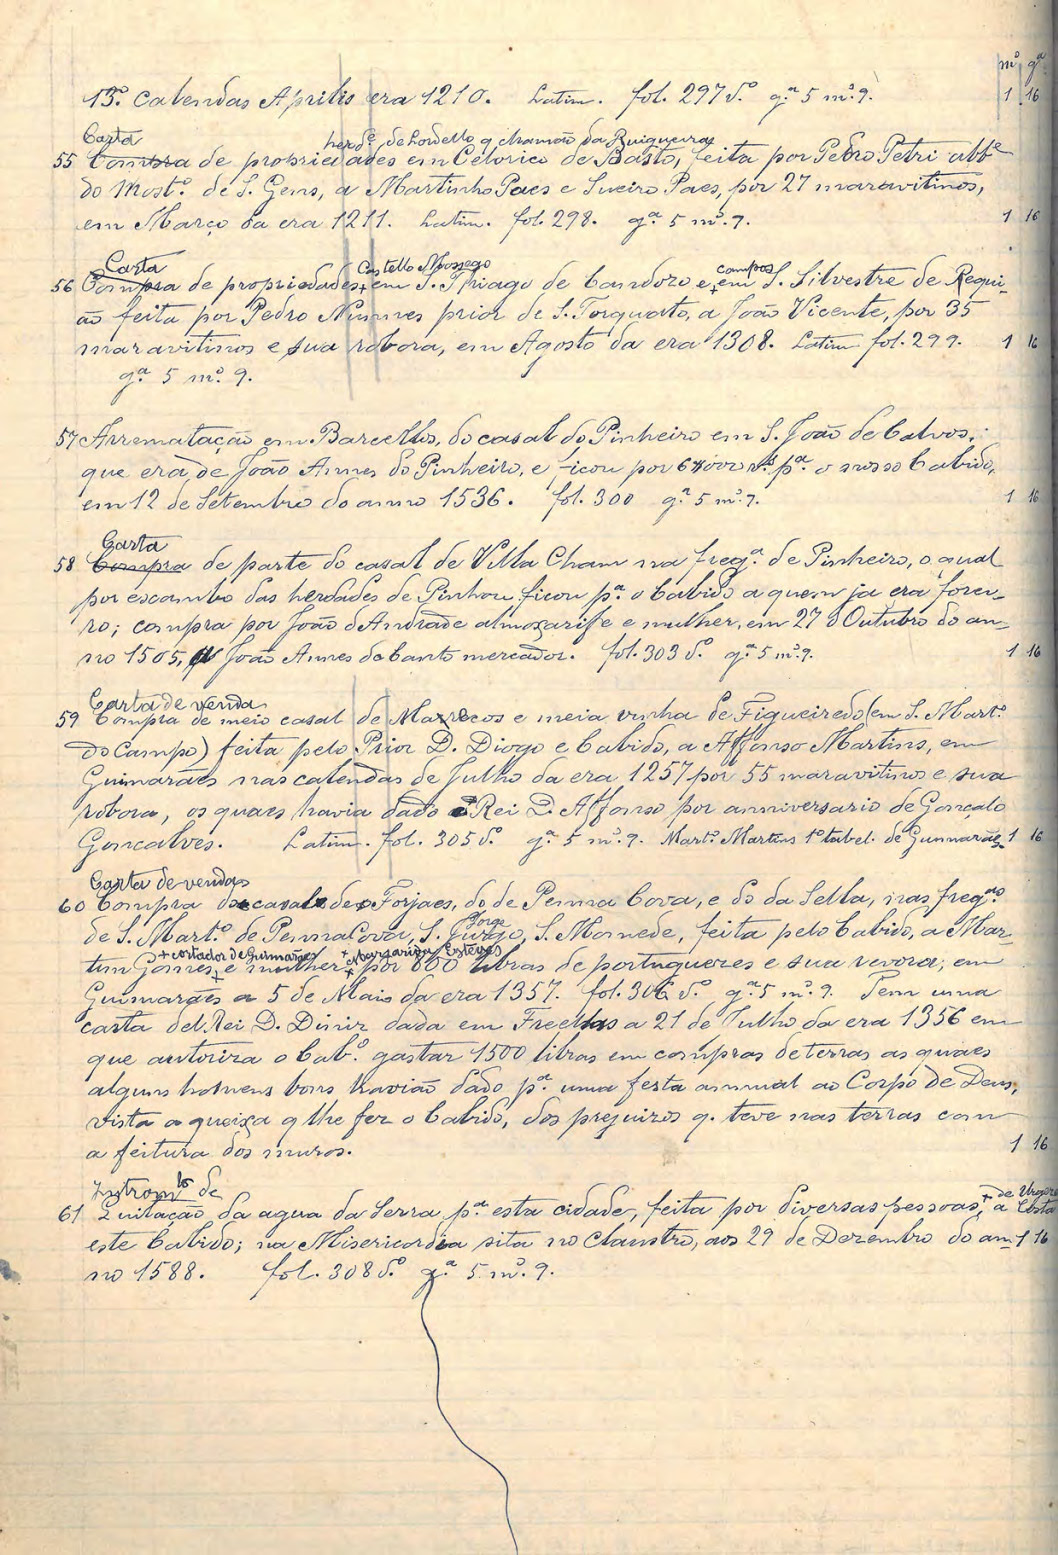 mº gª
13º Calendas Aprilis era 1210. Latim. fol. 297 vº gª 5 mº 9. 1 16
Carta herdᵉ de Lordello q chamão da Ruigueiras
55 Compra de propriedades em Celorico de Basto, feita por Pedro Petri abbᵉ
do Mostº de S. Gens, a Martinho Paes e Sueiro Paes, por 27 maravitinos,
em Março da era 1211. Latim. fol. 298. gª 5 mº 9. 1 16
Carta Castello Mossego campos
56 Compra de propriedades + em S. Thiago de Candozo e + em S. Silvestre de Requi-
ão feita por Pedro Nunnes prior de S. Torquato, a João Vicente, por 35
maravitinos e sua robora, em Agosto da era 1308. Latim fol. 299. 1 16
gª 5 mº 9.
57 Arrematação em Barcellos, do casal do Pinheiro em S. João de Calvos,
que era de João Annes do Pinheiro, e ficou por 67000 rs. pª o nosso Cabido,
em 12 de Setembro do anno 1536. fol. 300 gª 5 mº 9. 1 16
Carta
58 Compra de parte do casal de Villa Cham na fregª de Pinheiro, o qual
por escambo das herdades de Pinhou ficou pª o Cabido a quem ja era forei-
ro; compra por João d'Andrade almoxarife e mulher, em 27 d'Outubro do an-
no 1505, a João Annes do Canto mercador. fol. 303 vº gª 5 mº 9. 1 16
Carta de venda
59 Compra de meio casal de Marrecos e meia vinha de Figueiredo (em S. Martº
do Campo) feita pelo Prior D. Diogo e Cabido, a Affonso Martins, em
Guimarães nas calendas de Julho da era 1257 por 55 maravitinos e sua
robora, os quaes havia dado Rei D. Affonso por anniversario de Gonçalo
Goncalves. Latim. fol. 305 vº gª 5 mº 9. Martº Martins 1º tabel. de Guimarães. 1 16
Carta de vendas
60 Compra dos casaes de Forjaes, do de Penna Cova, e do da Sella, nas fregas
Jorge
de S. Martº de Penna Cova, S. Jurgo, S. Mamede, feita pelo Cabido, a Mar-
+ cortador de Guimarães + Margarida Esteves
tim Gomes + e mulher + por 800 libras de portuguezes e sua revora, em
Guimarães a 5 de Maio da era 1357. fol. 306 vº gª 5 mº 9. Tem uma
carta del Rei D. Diniz dada em Freellas a 21 de Julho da era 1356 em
que autoriza o Cabº gastar 1500 libras em compras de terras as quaes
alguns homens bons havião dado pª uma festa annual ao Corpo de Deus,
vista a queixa q lhe fez o Cabido, dos prejuizos q. teve nas terras com
a feitura dos muros. 1 16
Instromto de
61 Quitação da agua da Serra pª esta cidade, feita por diversas pessoas, + a
este Cabido; na Misericordia sita no Claustro, aos 29 de Dezembro do an- 1 16
no 1588. fol. 308 vº gª 5 mº 9.